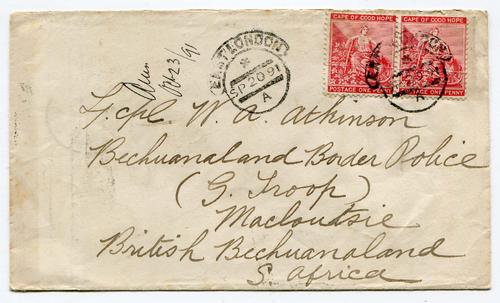 CAPE OF GOOD HOPE CAPE OF GOOD HOPE
POSTAGE ONE PENNY POSTAGE ONE PENNY
EAST LONDON
SP 20 91
A
23/91
L. Cpl. W. A. Atkinson
Bechuanaland Boder Police
(G. Troop)
Macloutsie
British Bechuanaland
S. Africa